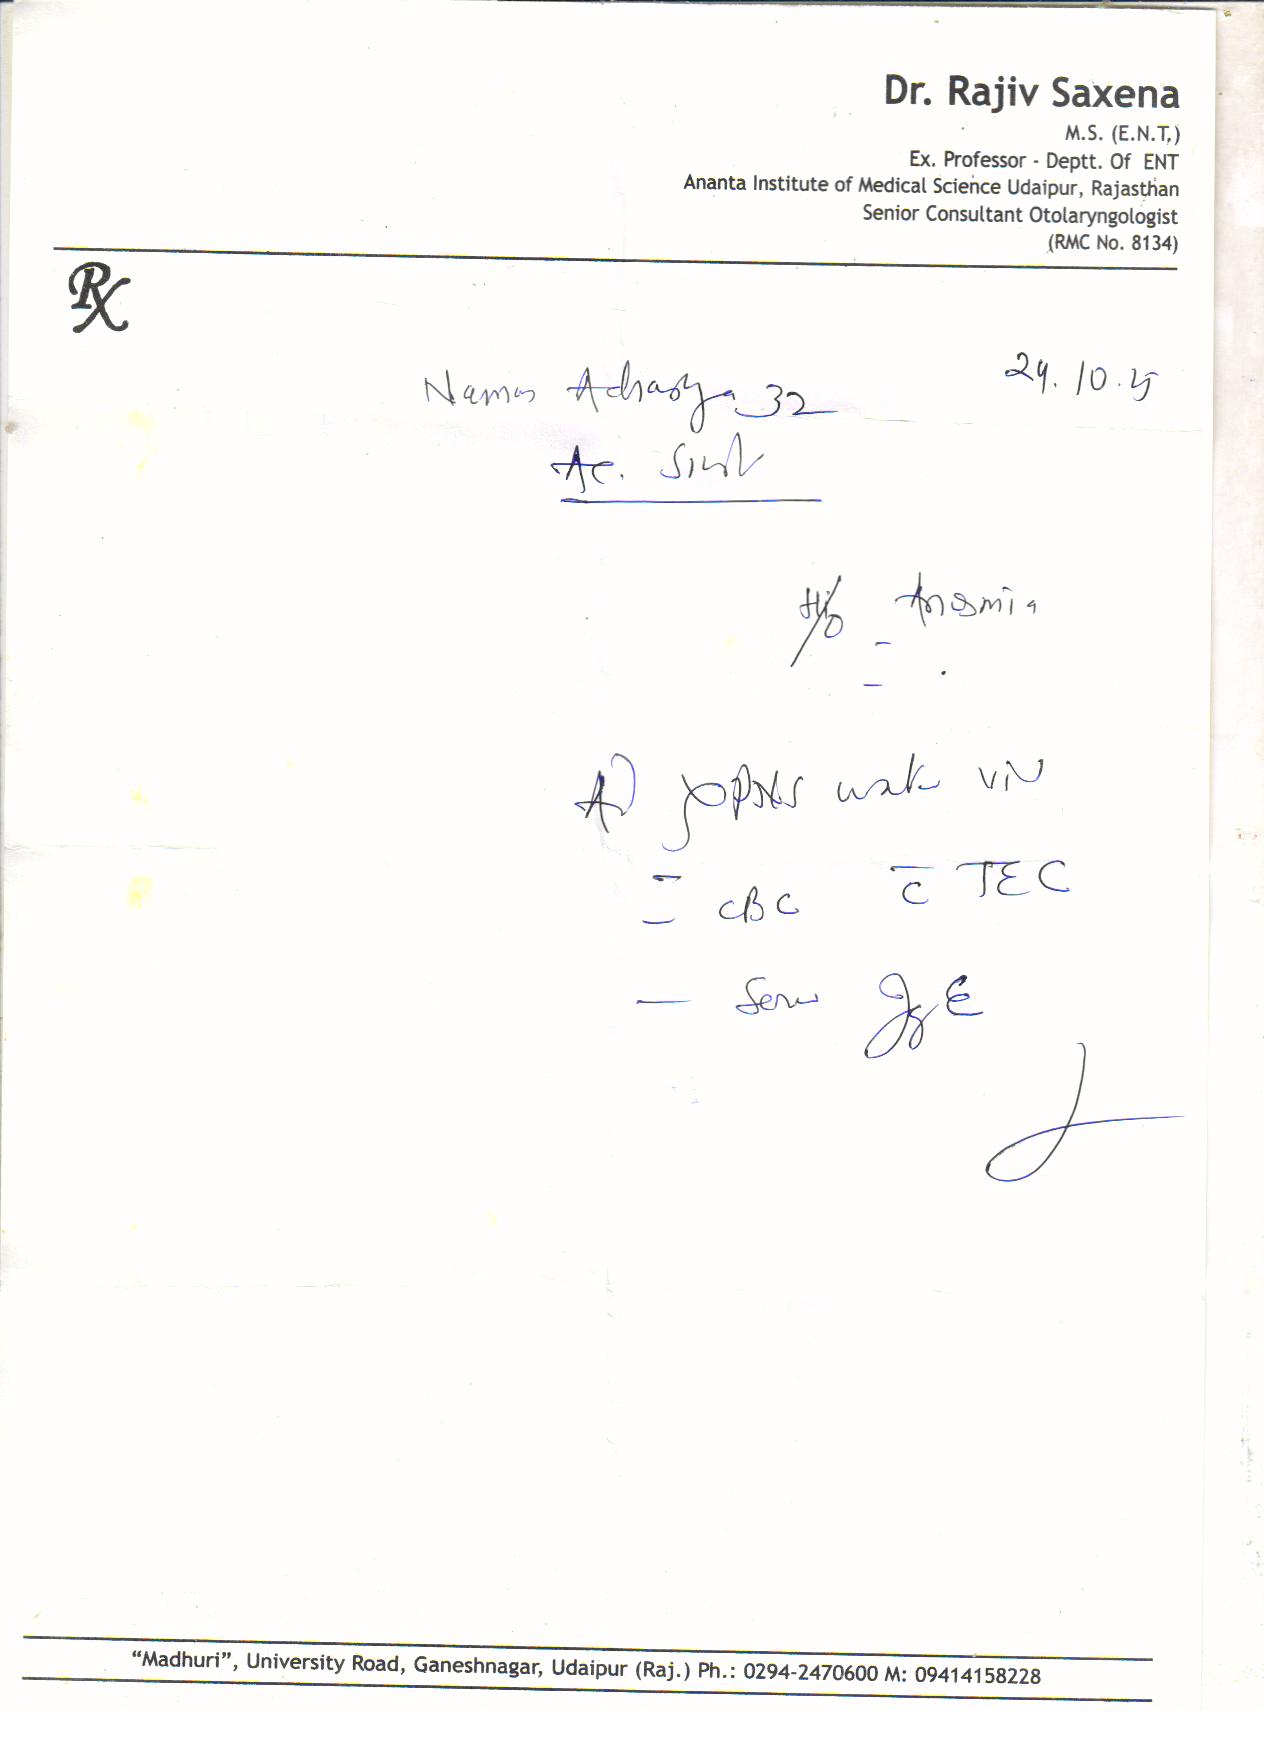 Dr. Rajiv Saxena
M.S. (E.N.T.)
Ex. Professor - Deptt. Of ENT
Ananta Institute of Medical Science Udaipur, Rajasthan
Senior Consultant Otolaryngologist
(RMC No. 8134)
Rx
Naman Acharya 32
Ac.
H/O Anemia
PNS VIV
- CBC c̄ TEC
- IgE
"Madhuri", University Road, Ganeshnagar, Udaipur (Raj.) Ph.: 0294-2470600 M: 09414158228